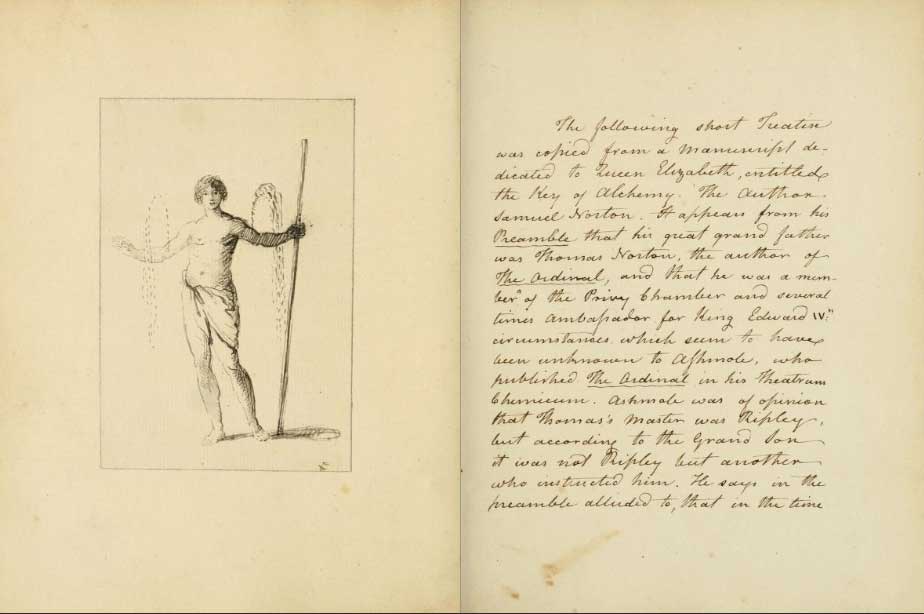 The following short Treatise
was copied from a Manuscript de-
dicated to Queen Elizabeth, entitled
the Key of Alchemy. The Author
Samuel Norton. It appears from his
Preamble that his great grand father
was Thomas Norton, the author of
The Ordinal, and that he was a mem-
ber of the Privy Chamber and several
times Ambassador for King Edward IV.
circumstances which seem to have
been unknown to Ashmole, who
published The Ordinal in his Theatrum
Chemicum. Ashmole was of opinion
that Thomas's Master was Ripley,
but according to the Grand Son
it was not Ripley but another
who instructed him. He says in the
preamble alluded to, that in the time